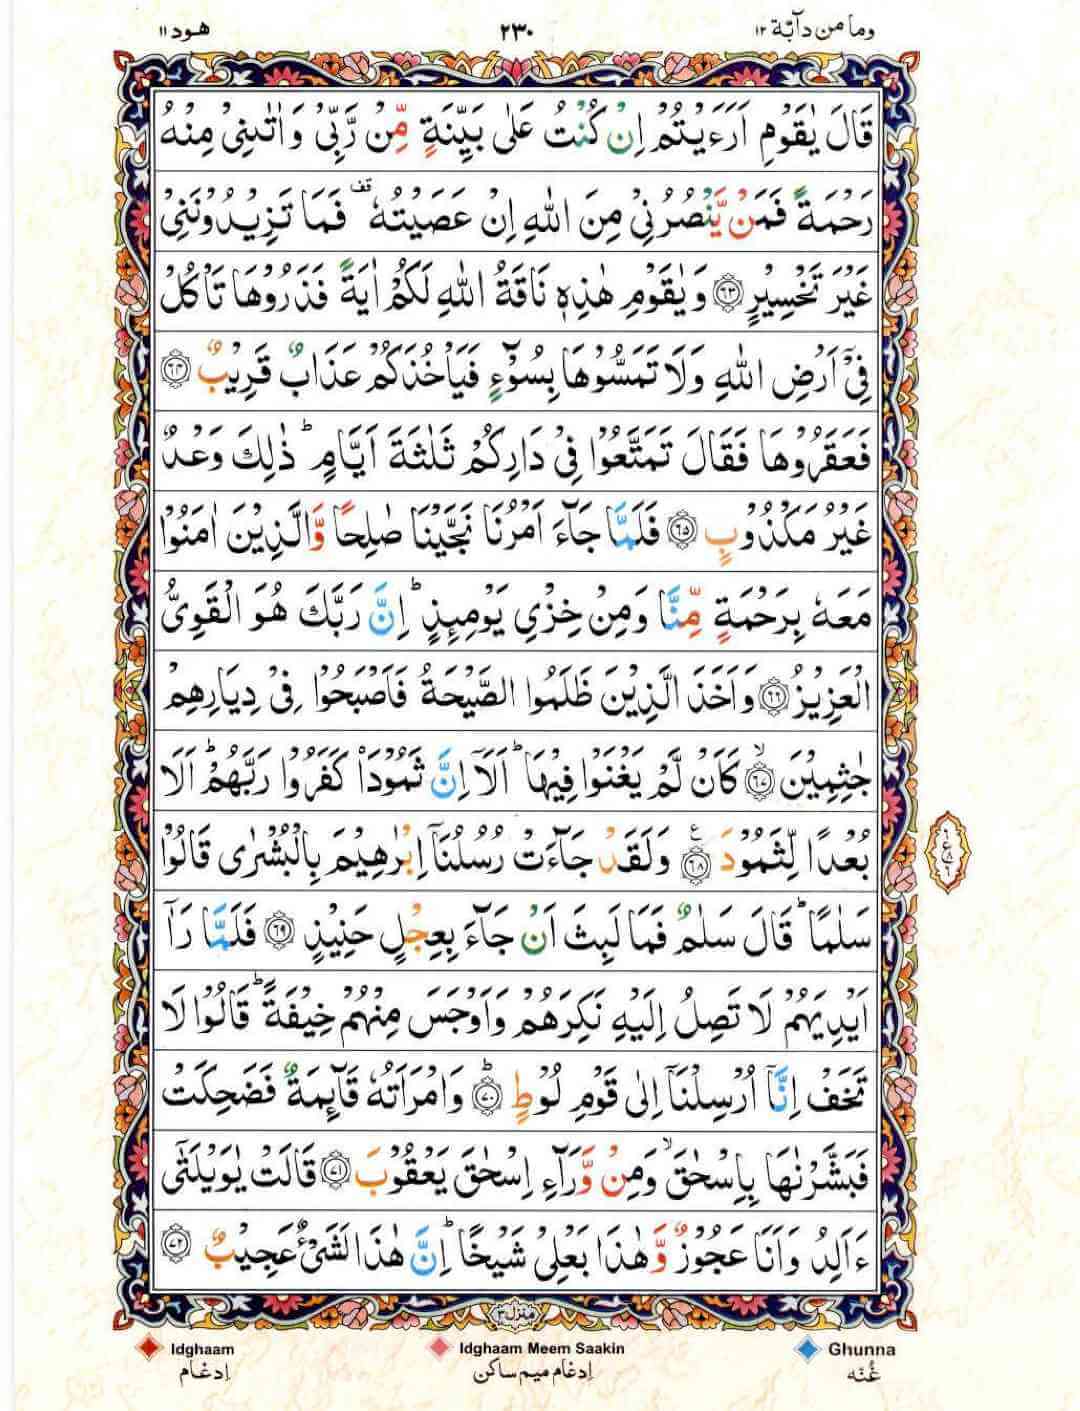 وما من دآبة ١٢
٢٣٠
هود ١١
قَالَ يٰقَوْمِ اَرَءَيْتُمْ اِنْ كُنْتُ عَلٰى بَيِّنَةٍ مِّنْ رَّبِّىْ وَاٰتٰىنِىْ مِنْهُ
رَحْمَةً فَمَنْ يَّنْصُرُنِىْ مِنَ اللّٰهِ اِنْ عَصَيْتُهٗ ۫ فَمَا تَزِيْدُوْنَنِىْ
غَيْرَ تَخْسِيْرٍ ﴿٦٣﴾ وَيٰقَوْمِ هٰذِهٖ نَاقَةُ اللّٰهِ لَكُمْ اٰيَةً فَذَرُوْهَا تَاْكُلْ
فِىْۤ اَرْضِ اللّٰهِ وَلَا تَمَسُّوْهَا بِسُوْٓءٍ فَيَاْخُذَكُمْ عَذَابٌ قَرِيْبٌ ﴿٦٤﴾
فَعَقَرُوْهَا فَقَالَ تَمَتَّعُوْا فِىْ دَارِكُمْ ثَلٰثَةَ اَيَّامٍ ؕ ذٰلِكَ وَعْدٌ
غَيْرُ مَكْذُوْبٍ ﴿٦٥﴾ فَلَمَّا جَآءَ اَمْرُنَا نَجَّيْنَا صٰلِحًا وَّالَّذِيْنَ اٰمَنُوْا
مَعَهٗ بِرَحْمَةٍ مِّنَّا وَمِنْ خِزْىِ يَوْمِئِذٍ ؕ اِنَّ رَبَّكَ هُوَ الْقَوِىُّ
الْعَزِيْزُ ﴿٦٦﴾ وَاَخَذَ الَّذِيْنَ ظَلَمُوا الصَّيْحَةُ فَاَصْبَحُوْا فِىْ دِيَارِهِمْ
جٰثِمِيْنَ ۙ﴿٦٧﴾ كَاَنْ لَّمْ يَغْنَوْا فِيْهَا ؕ اَلَاۤ اِنَّ ثَمُوْدَاْ كَفَرُوْا رَبَّهُمْ ؕ اَلَا
بُعْدًا لِّثَمُوْدَ ﴿٦٨﴾ ع وَلَقَدْ جَآءَتْ رُسُلُنَاۤ اِبْرٰهِيْمَ بِالْبُشْرٰى قَالُوْا
سَلٰمًا ؕ قَالَ سَلٰمٌ فَمَا لَبِثَ اَنْ جَآءَ بِعِجْلٍ حَنِيْذٍ ﴿٦٩﴾ فَلَمَّا رَاٰۤ
اَيْدِيَهُمْ لَا تَصِلُ اِلَيْهِ نَكِرَهُمْ وَاَوْجَسَ مِنْهُمْ خِيْفَةً ؕ قَالُوْا لَا
تَخَفْ اِنَّاۤ اُرْسِلْنَاۤ اِلٰى قَوْمِ لُوْطٍ ؕ﴿٧٠﴾ وَامْرَاَتُهٗ قَآئِمَةٌ فَضَحِكَتْ
فَبَشَّرْنٰهَا بِاِسْحٰقَ ۙ وَمِنْ وَّرَآءِ اِسْحٰقَ يَعْقُوْبَ ﴿٧١﴾ قَالَتْ يٰوَيْلَتٰٓى
ءَاَلِدُ وَاَنَا عَجُوْزٌ وَّهٰذَا بَعْلِىْ شَيْخًا ؕ اِنَّ هٰذَا لَشَىْءٌ عَجِيْبٌ ﴿٧٢﴾
منزل ٣
Idghaam
Idghaam Meem Saakin
Ghunna
اِدغام
اِدغام میم ساکن
غُنّه